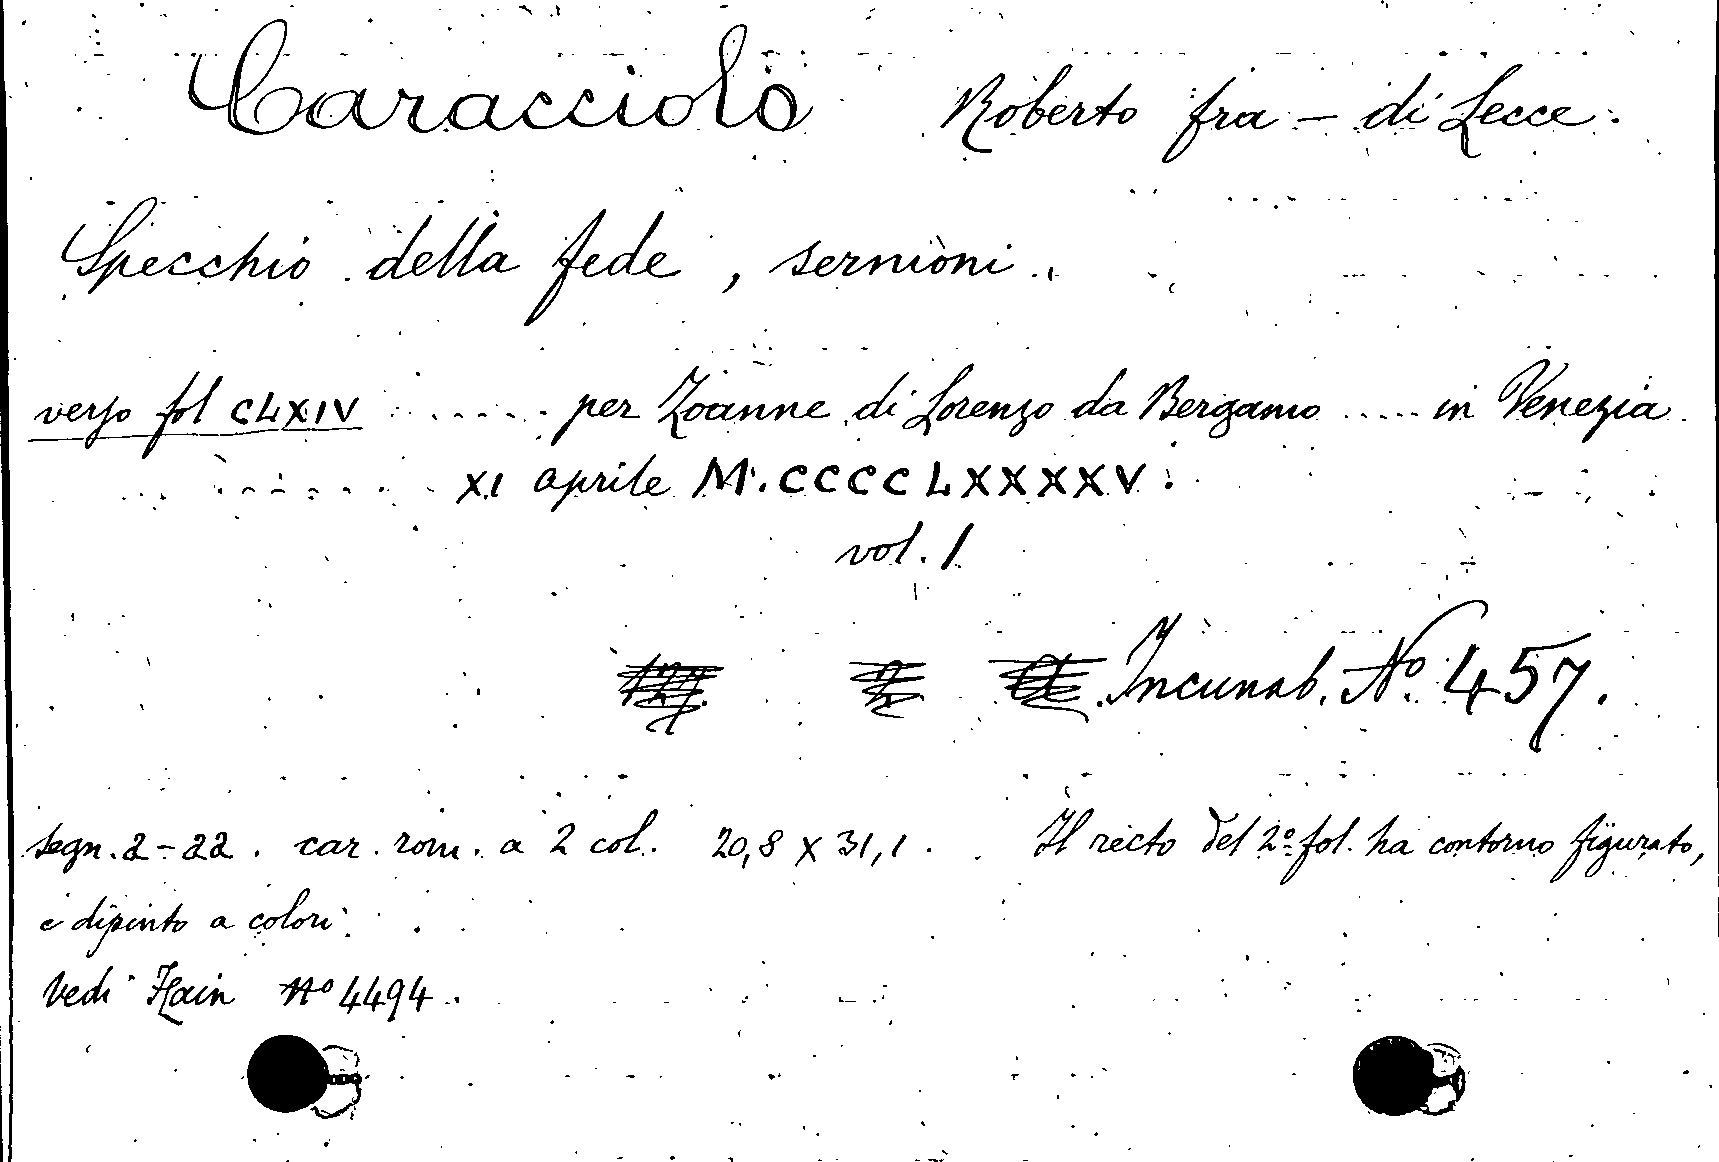 Caracciolo Roberto fra - di Lecce.
Specchio della fede, sermoni.
verso fol CLXIV ...... per Zoanne di Lorenzo da Bergamo ..... in Venezia
XI aprile M.CCCCLXXXXV.
vol. 1
Incunab. Nº. 457.
segn. a-aa. car. rom. a 2 col. 20,8 x 31,1. Il recto del 2º fol. ha contorno figurato,
e dipinto a colori.
Vedi Hain Nº 4494.